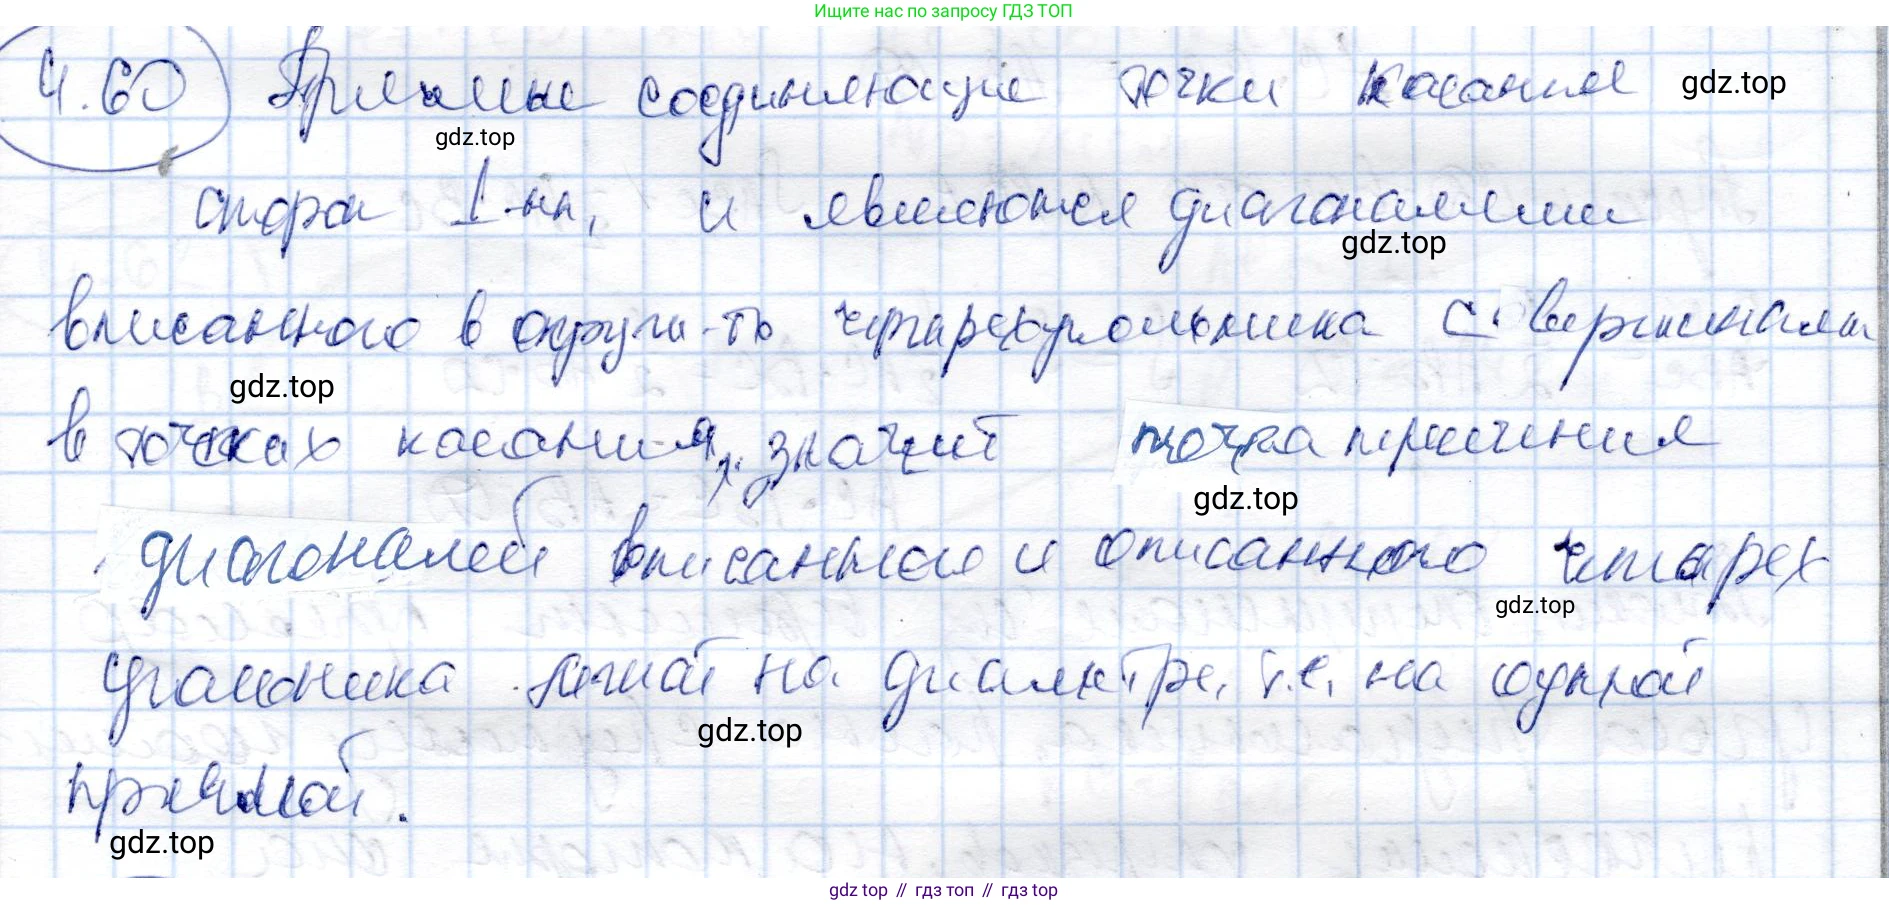 Ищите нас по запросу ГДЗ ТОП
4.60 Прямые соединяющие точки касания gdz.top
gdz.top
сторон ⊥-ны, и являются диагоналями
gdz.top
вписанного в окружн-ть четырехугольника с вершинами
gdz.top
в точках касания, значит точка
gdz.top
диагоналей вписанного и описанного четырех
gdz.top
угольника лежат на диаметре, т.е. на одной
gdz.top
прямой.
gdz.top
gdz top // гдз топ // гдз top